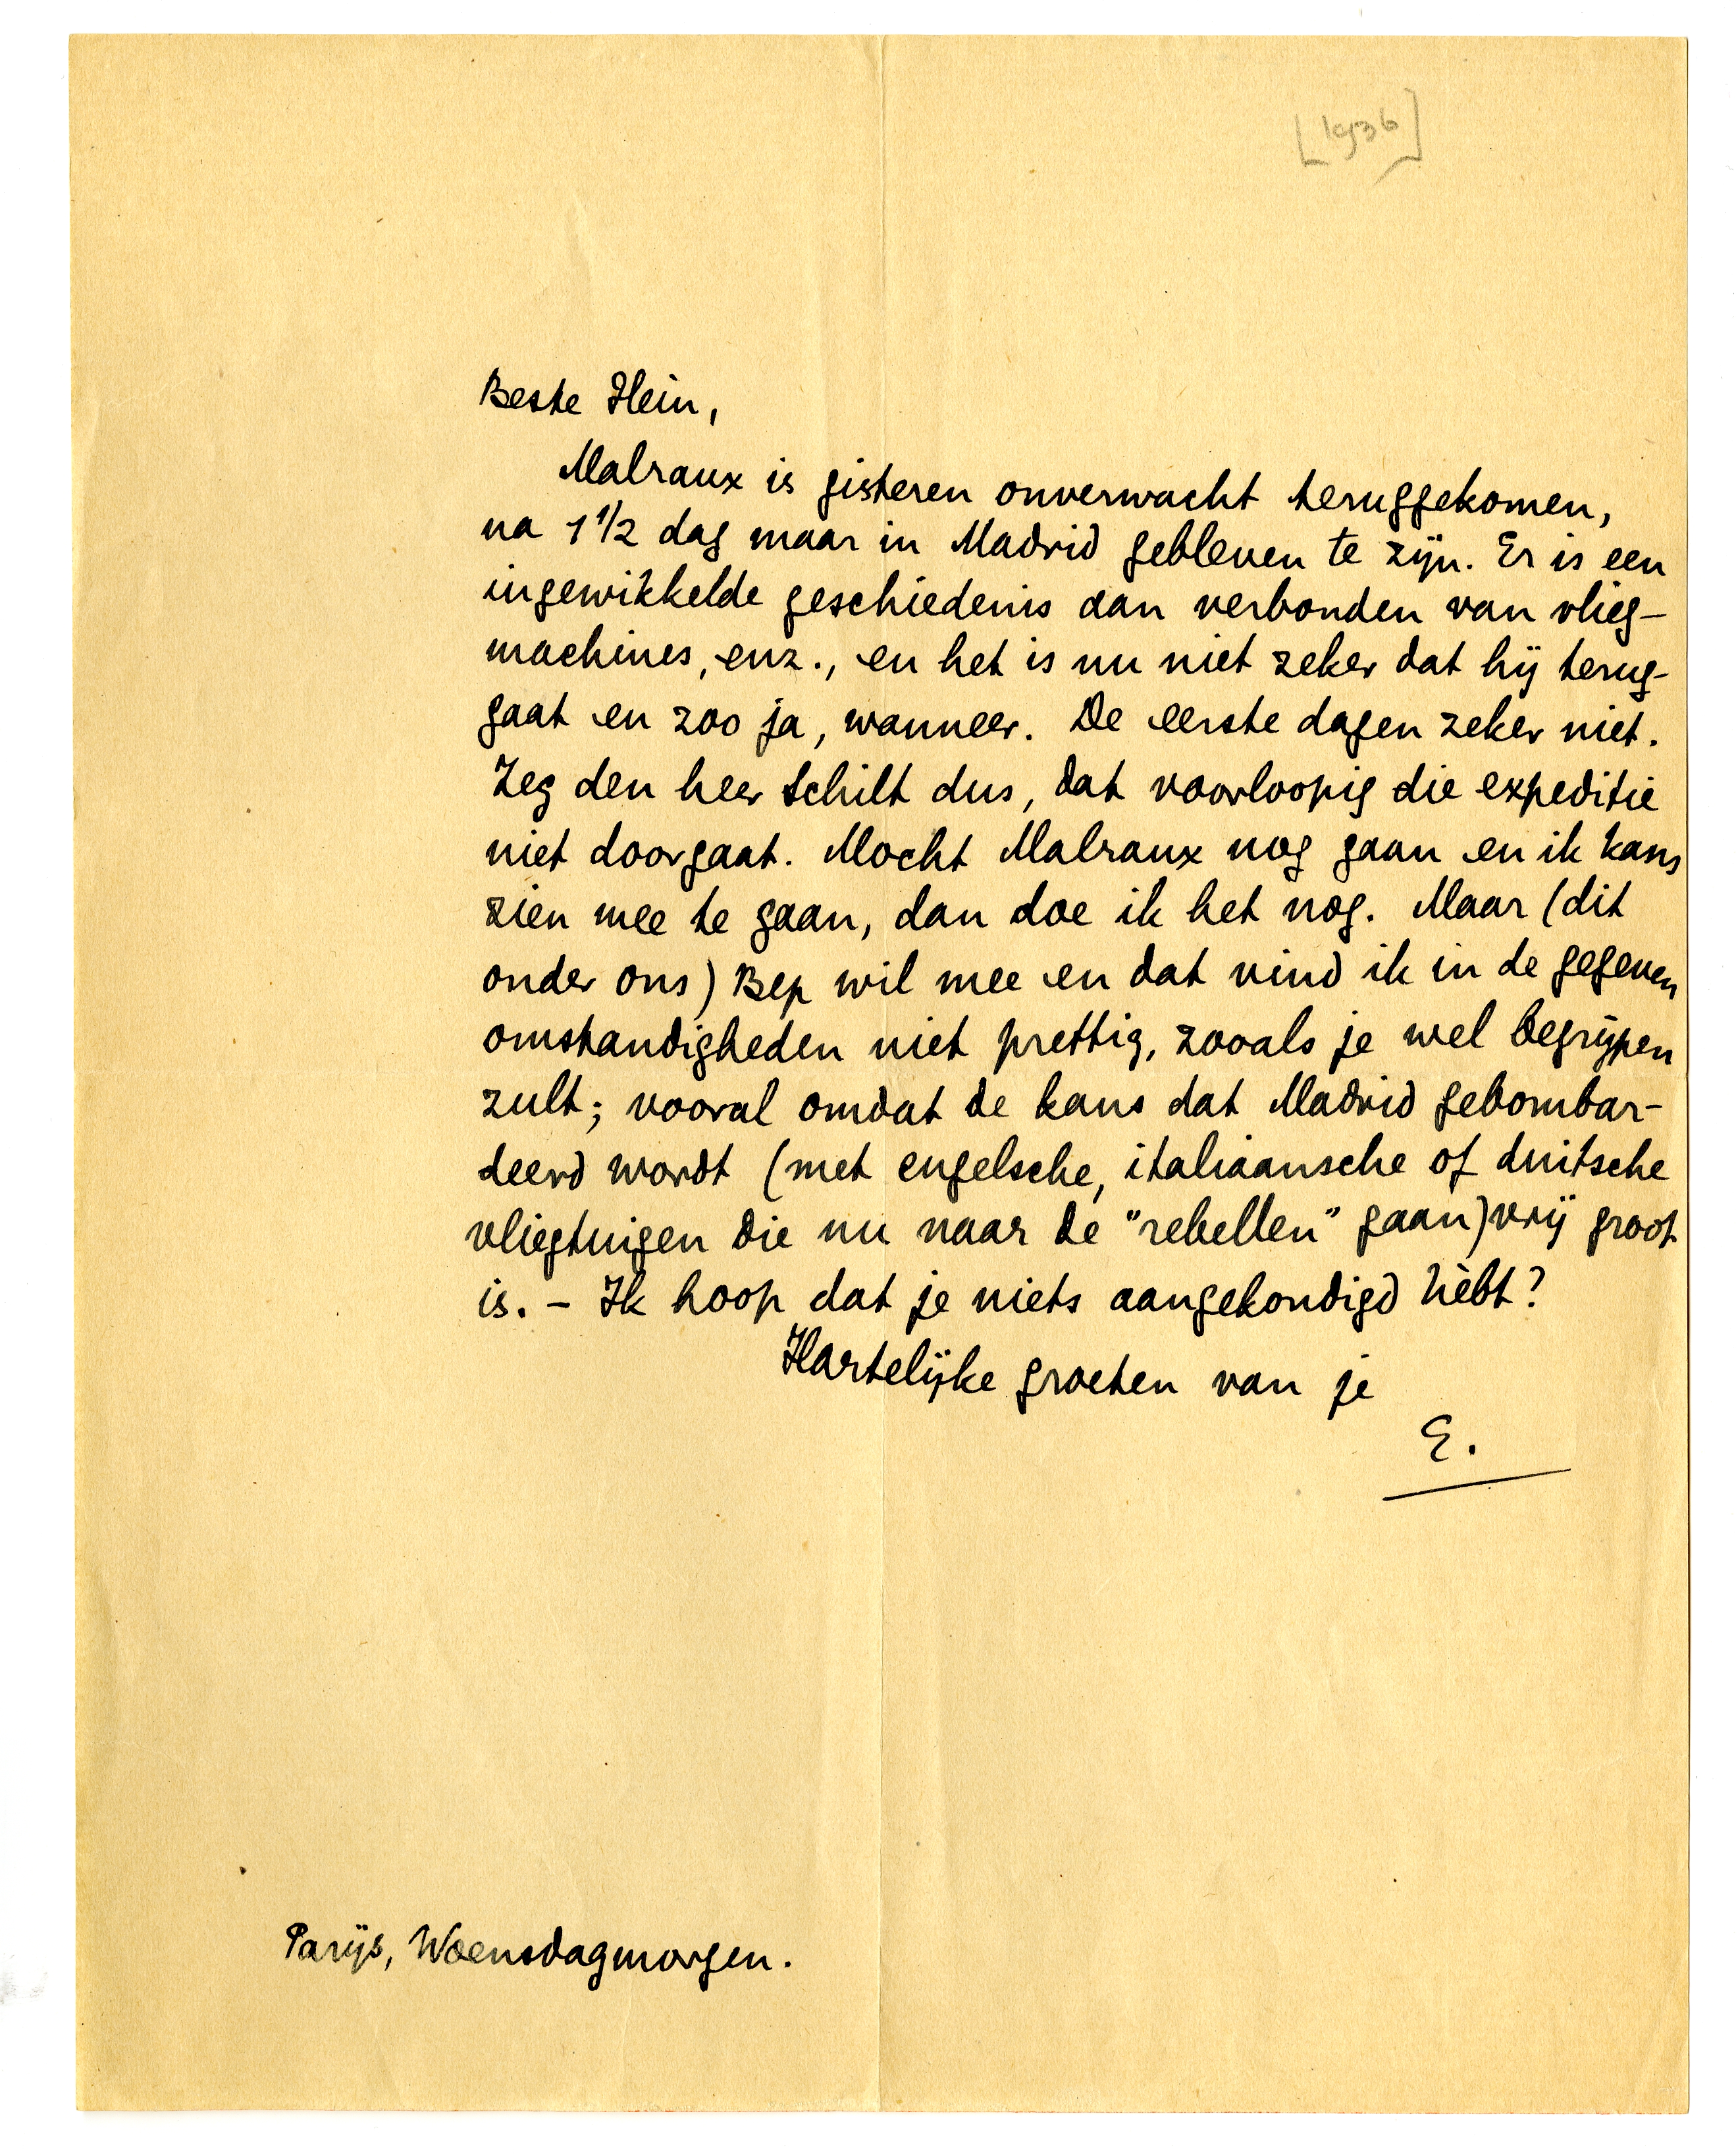 [1936]
Beste Hein,
Malraux is gisteren onverwacht teruggekomen,
na 1 1/2 dag maar in Madrid gebleven te zijn. Er is een
ingewikkelde geschiedenis aan verbonden van vlieg-
machines, enz., en het is nu niet zeker dat hij terug-
gaat en zoo ja, wanneer. De eerste dagen zeker niet.
Zeg den heer Schilt dus, dat voorloopig die expeditie
niet doorgaat. Mocht Malraux nog gaan en ik kans
zien mee te gaan, dan doe ik het nog. Maar (dit
onder ons) Bep wil mee en dat vind ik in de gegeven
omstandigheden niet prettig, zooals je wel begrijpen
zult; vooral omdat de kans dat Madrid gebombar-
deerd wordt (met engelsche, italiaansche of duitsche
vliegtuigen die nu naar de "rebellen" gaan) vrij groot
is. - Ik hoop dat je niets aangekondigd hèbt?
Hartelijke groeten van je
E.
Parijs, Woensdagmorgen.